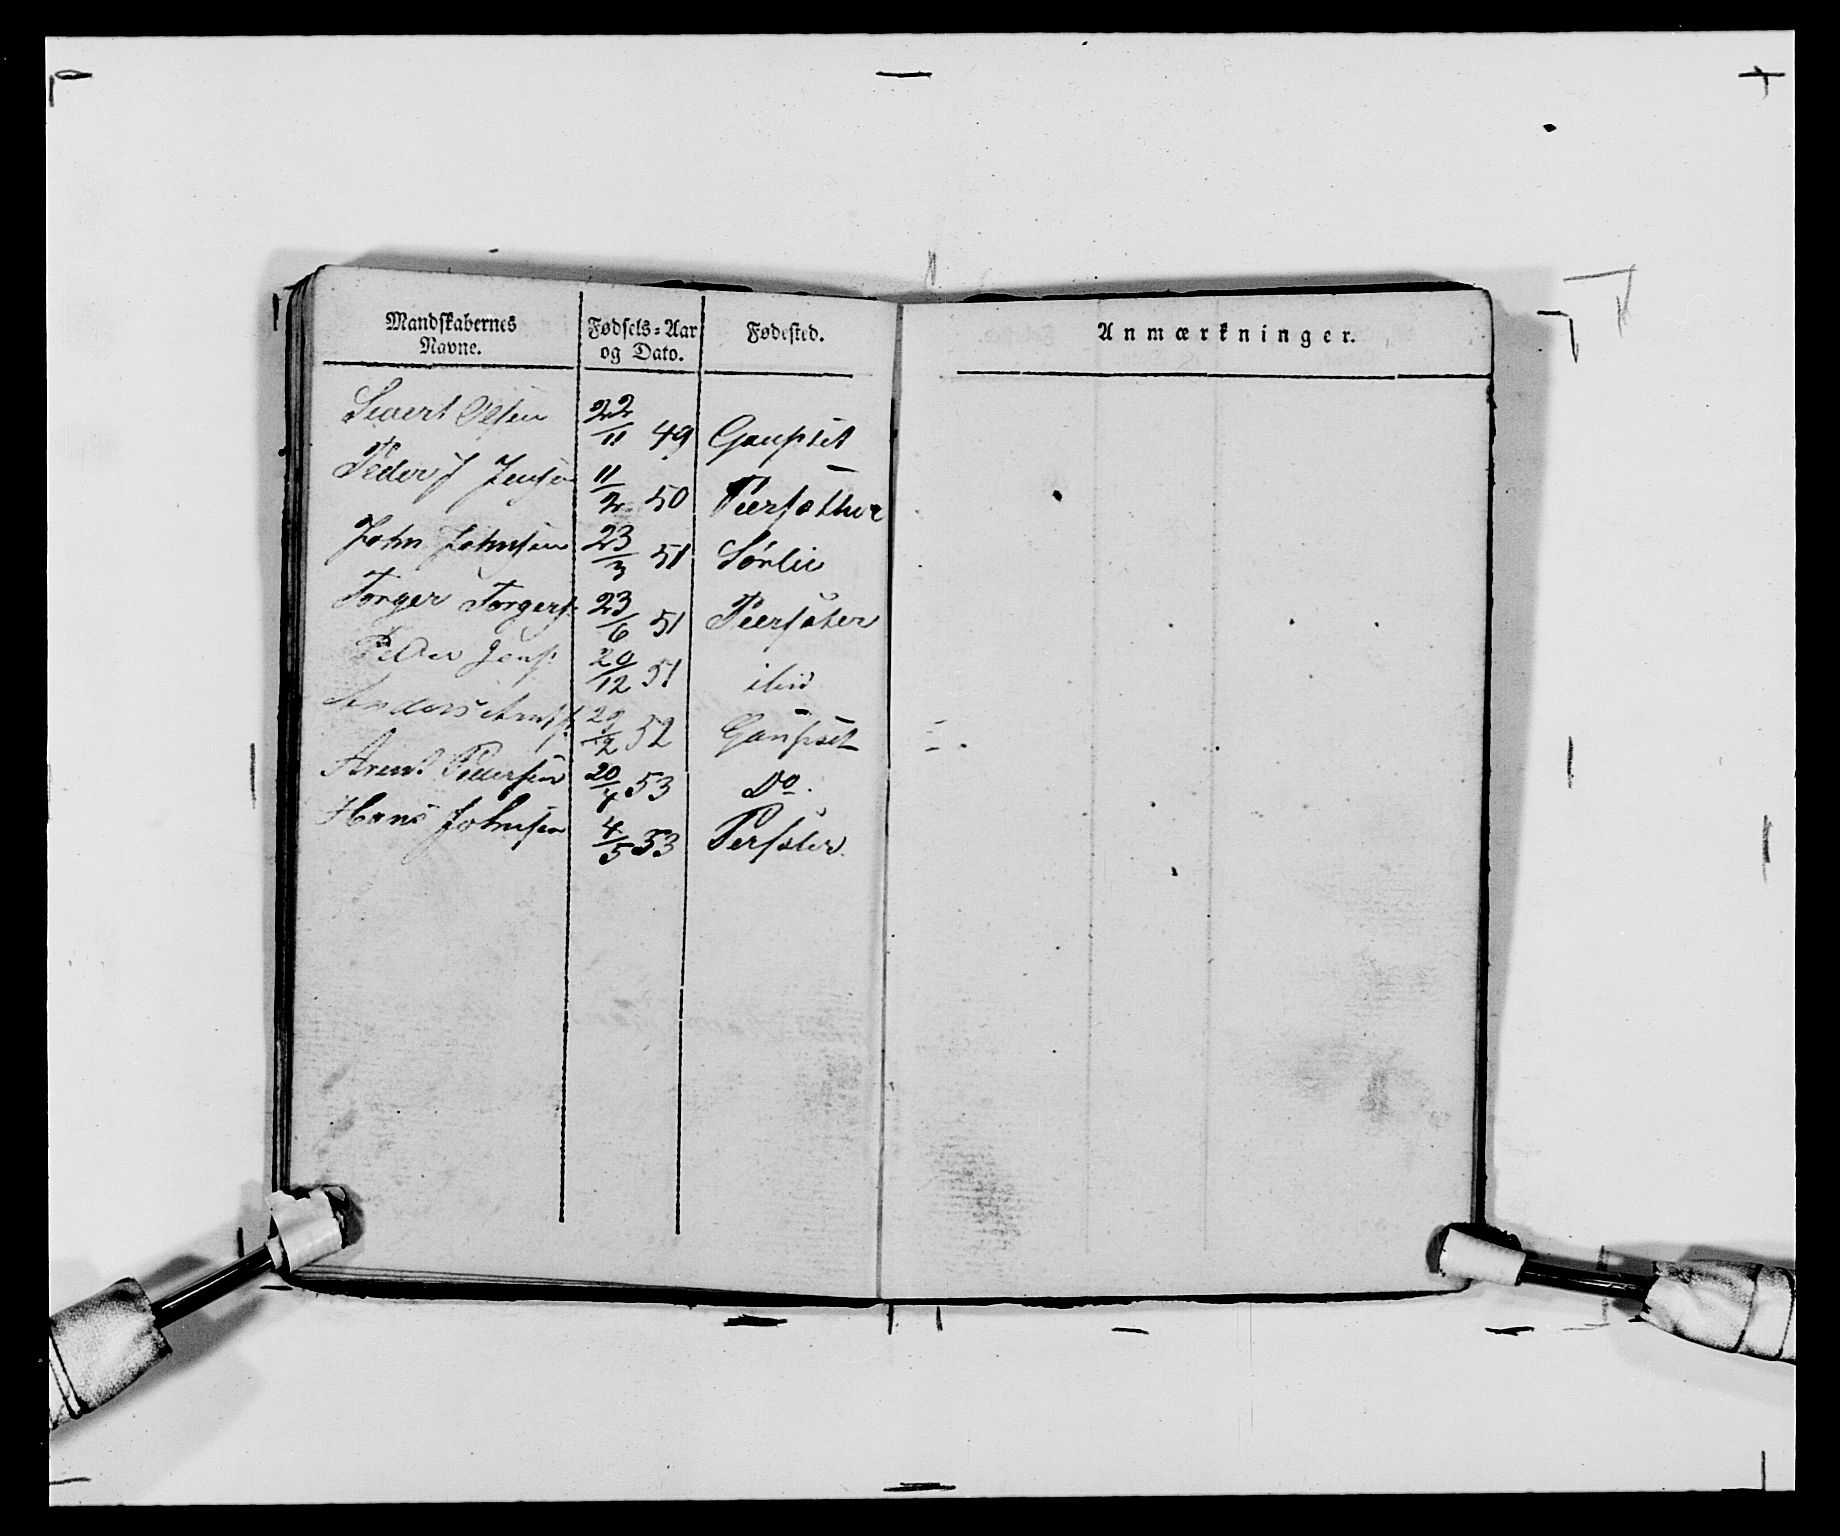 Mandskabernes Navne. Fødsels-Aar og Dato. Fødested. Anmærkninger.
Sivert Olsen 22/11 49 Gaupset
Peder J Jensen 11/2 50 Peersæther
John Johnsen 23/3 51 Sørlie
Torger Torgers. 23/6 51 Peersæter
Peder Jens. 20/12 51 ibid
Anders 29/2 52 Gaupset
Arent Pedersen 20/4 53 Do.
Hans Johnsen 4/5 53 Persæter.